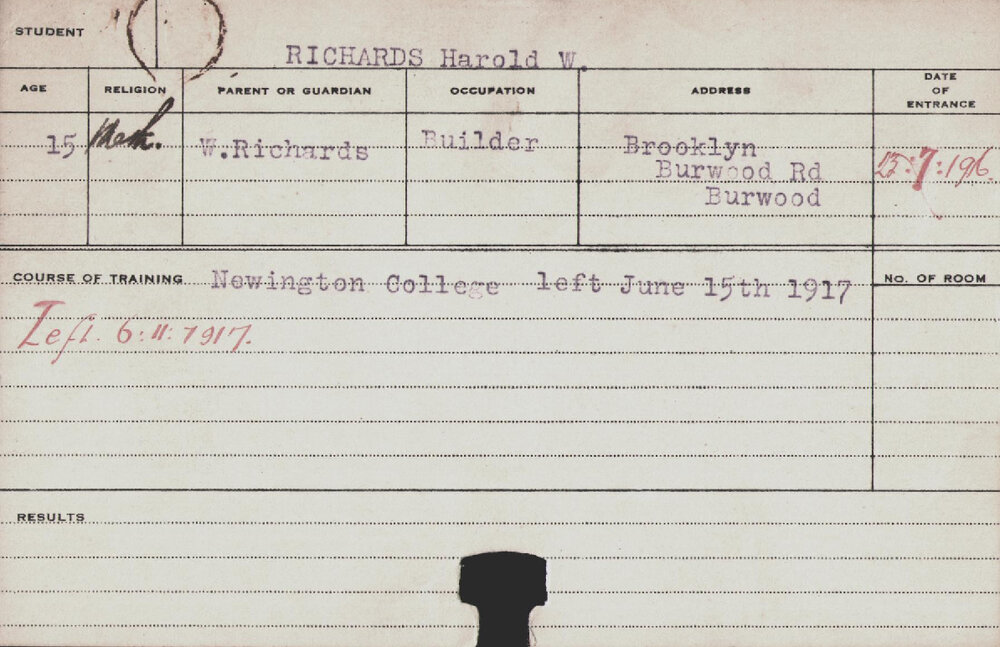 STUDENT
RICHARDS Harold W.
AGE RELIGION PARENT OR GUARDIAN OCCUPATION ADDRESS DATE OF ENTRANCE
15 Meth. W.Richards Builder Brooklyn
Burwood Rd
Burwood
:7:1916.
COURSE OF TRAINING Newington College left June 15th 1917 NO. OF ROOM
Left. 6:11:1917.
RESULTS